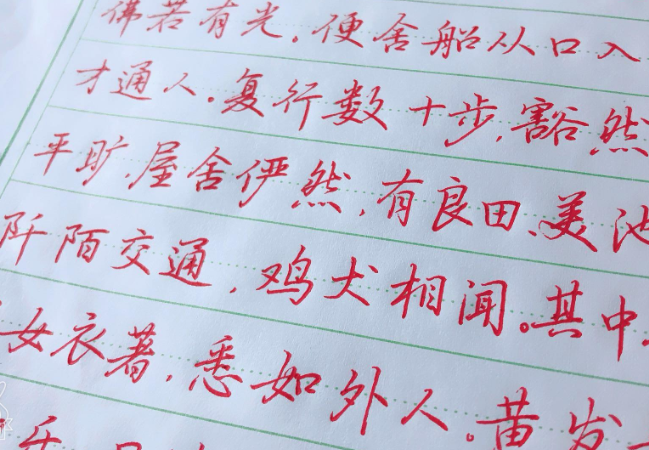 佛若有光,便舍船从口入
才通人.复行数十步,豁然
平旷,屋舍俨然,有良田、美池
阡陌交通,鸡犬相闻。其中
女衣著,悉如外人。黄发